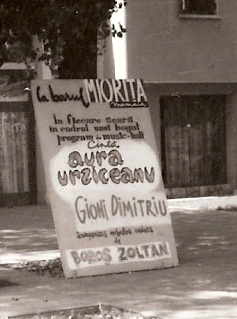 La barul MIORIȚA
Mamaia
În fiecare seară
în cadrul unui bogat
program de music-hall
Cîntă
aura
urziceanu
Gioni Dimitriu
de
BOROS ZOLTAN